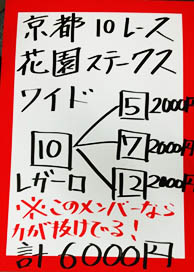 京都10レース
花園ステークス
ワイド
5 2000円
10 7 2000円
12 2000円
レガーロ
※このメンバーなら
力が抜けてる!
計6000円